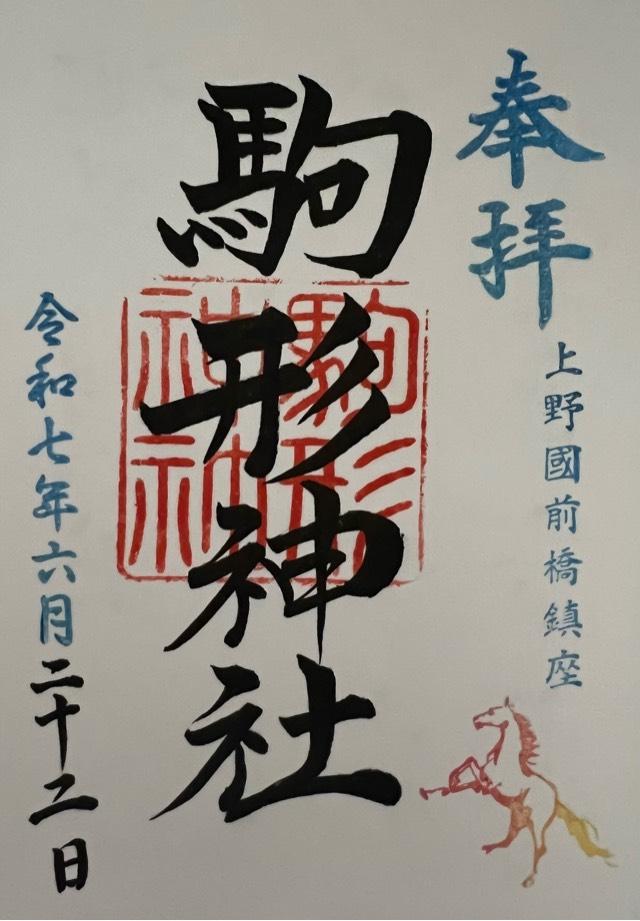 奉拝
上野國前橋鎮座
駒形神社
駒形
神社
令和七年六月二十二日